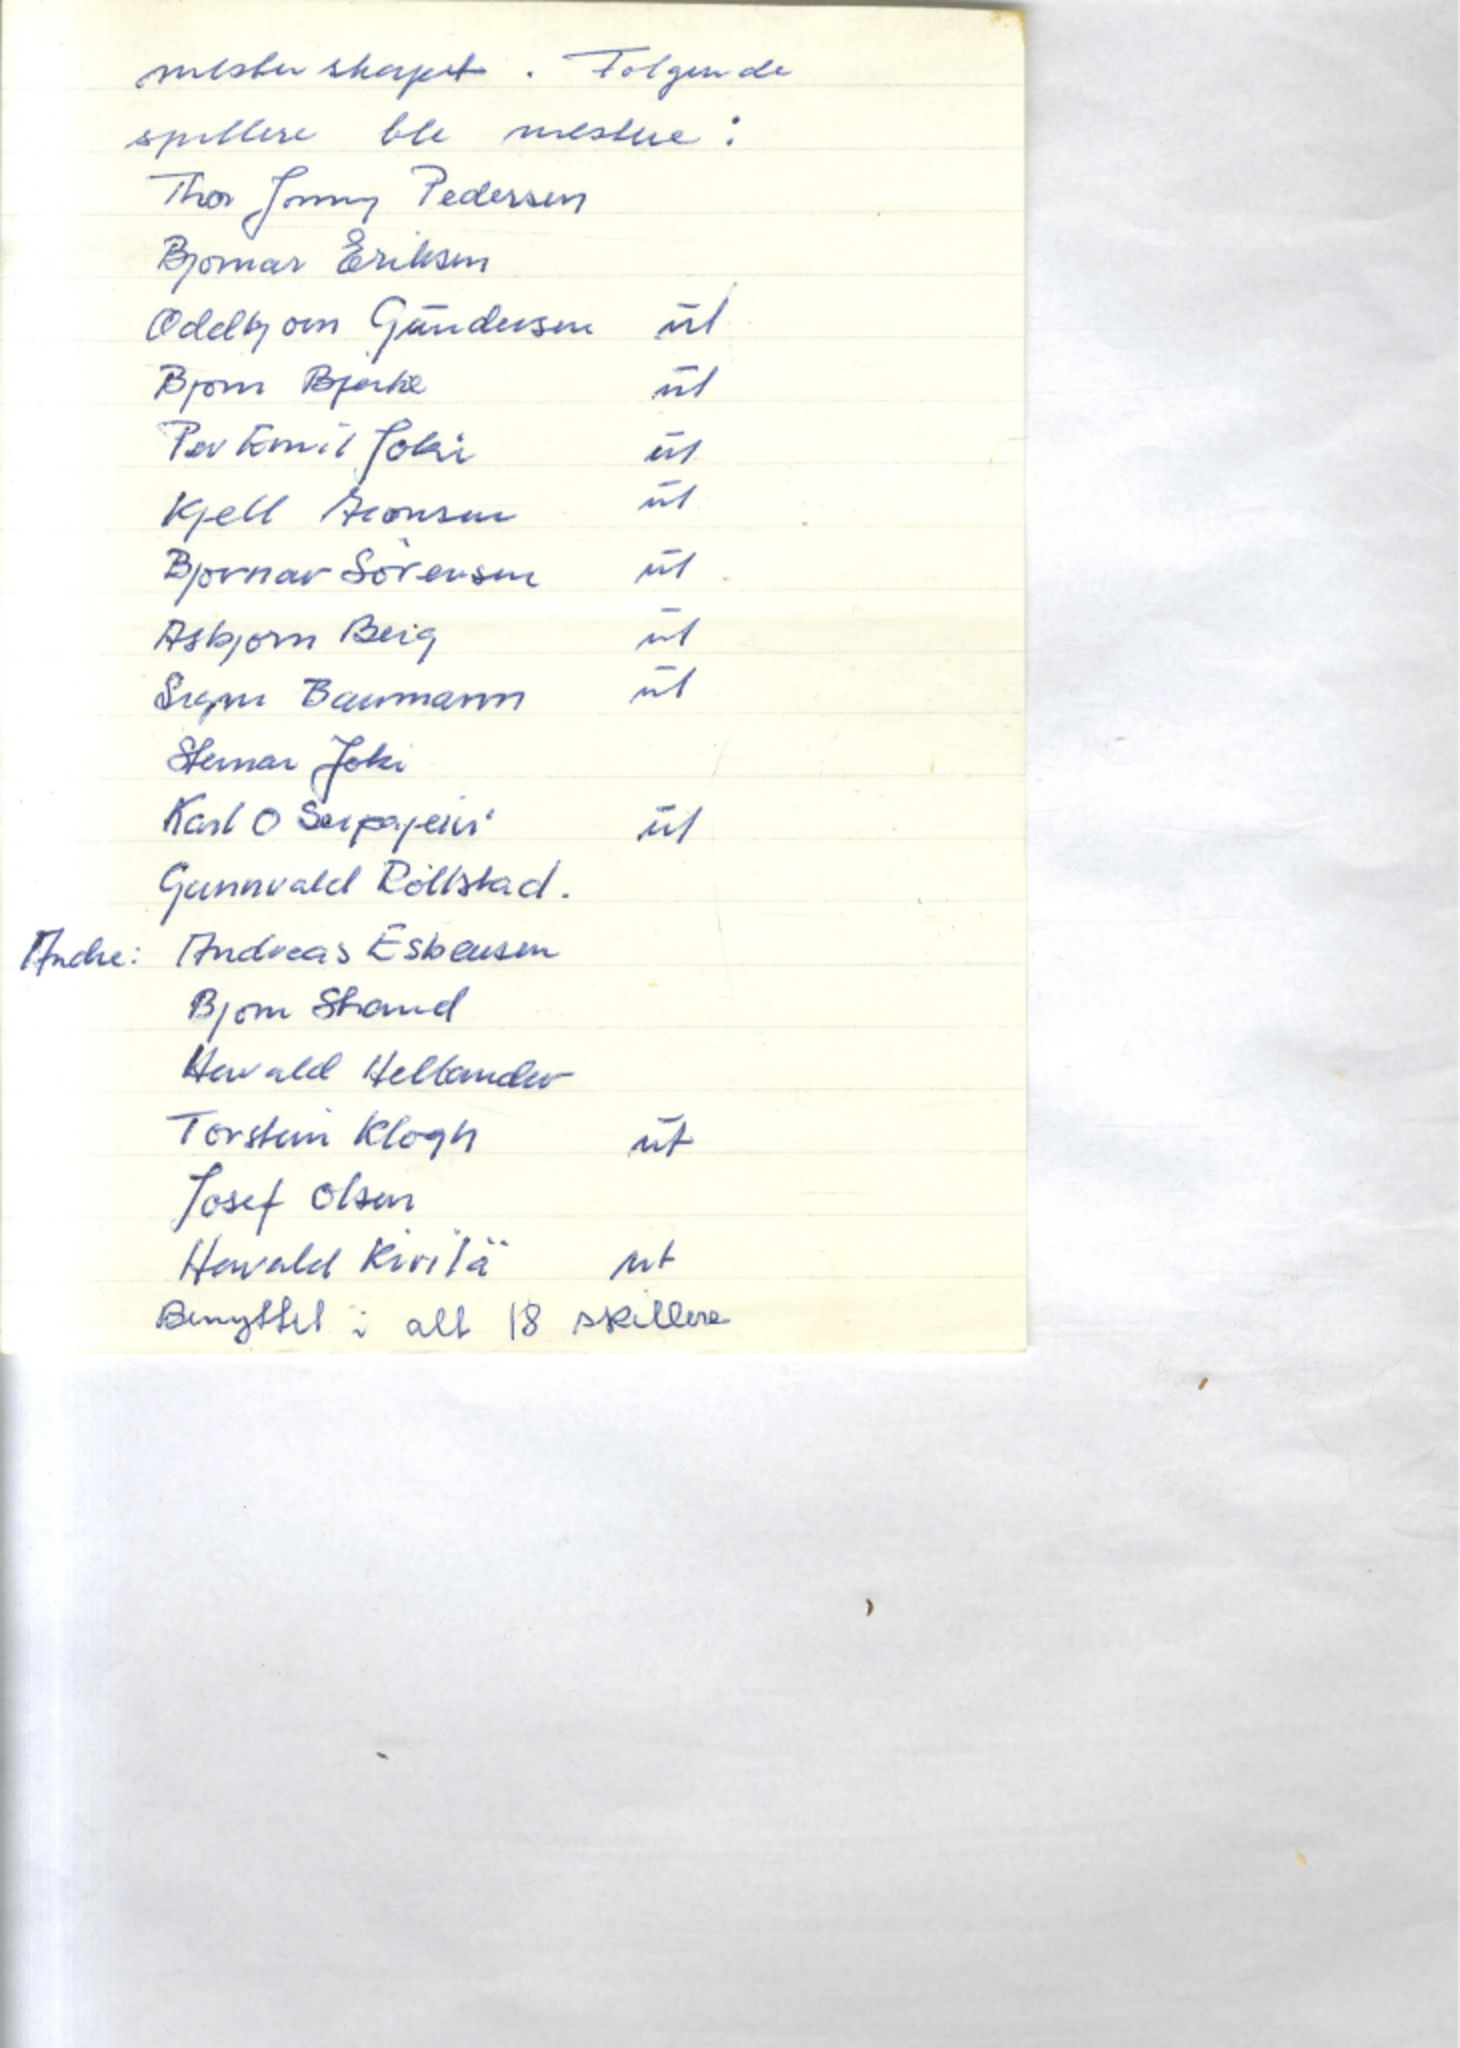 mesterskapet. Følgende
spillere ble mestere:
Thor Jonny Pedersen
Bjørnar Eriksen
Oddbjørn Gundersen ut
Bjørn Bjerke ut
Per Emil Joki ut
Kjell Aronsen ut
Bjørnar Sörensen ut
Asbjørn Beig ut
Baumann ut
Steinar Joki
Karl O Seipäjärvi ut
Gunnvald Röllstad.
Andre: Andreas Esbensen
Bjørn Strand
Harvald Hellander
Torstein Klogh ut
Josef Olsen
Harvald Kivilä ut
Benyttet i alt 18 spillere